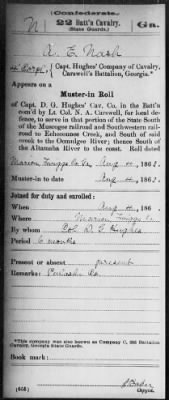 Confederate.
N 22 Batt'n Cavalry. Ga.
(State Guards.)
Nash
4" Corp'l, Capt. Hughes' Company of Cavalry,
Carswell's Battalion, Georgia.*
Appears on a
Muster-in Roll
of Capt. D. G. Hughes' Cav. Co. in the Batt'n
com'd by Lt. Col. N. A. Carswell, for local de-
fence, to serve in that portion of the State South
of the Muscogee railroad and Southwestern rail-
road to Echoconnee Creek, and South of said
creek to the Ocmulgee River; thence South of
the Altamaha River to the coast. Roll dated
Marion, Twiggs Co. Ga. Aug 4, 1863.
Muster-in to date Aug 4, 1863.
Joined for duty and enrolled:
When Aug 4, 186 .
Where Marion Twiggs Co
By whom Col. D. G. Hughes
Period 6 months
Present or absent present
Remarks: Co.
*This company was also known as Company C, 22d Battalion
Cavalry, Georgia State Guards.
Book mark:
Copyist.